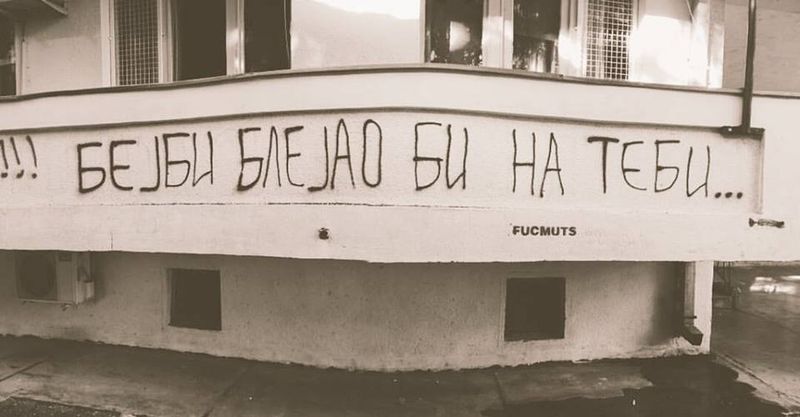 !!! БЕЈБИ БЛЕЈАО БИ НА ТЕБИ...
FUCMUTS